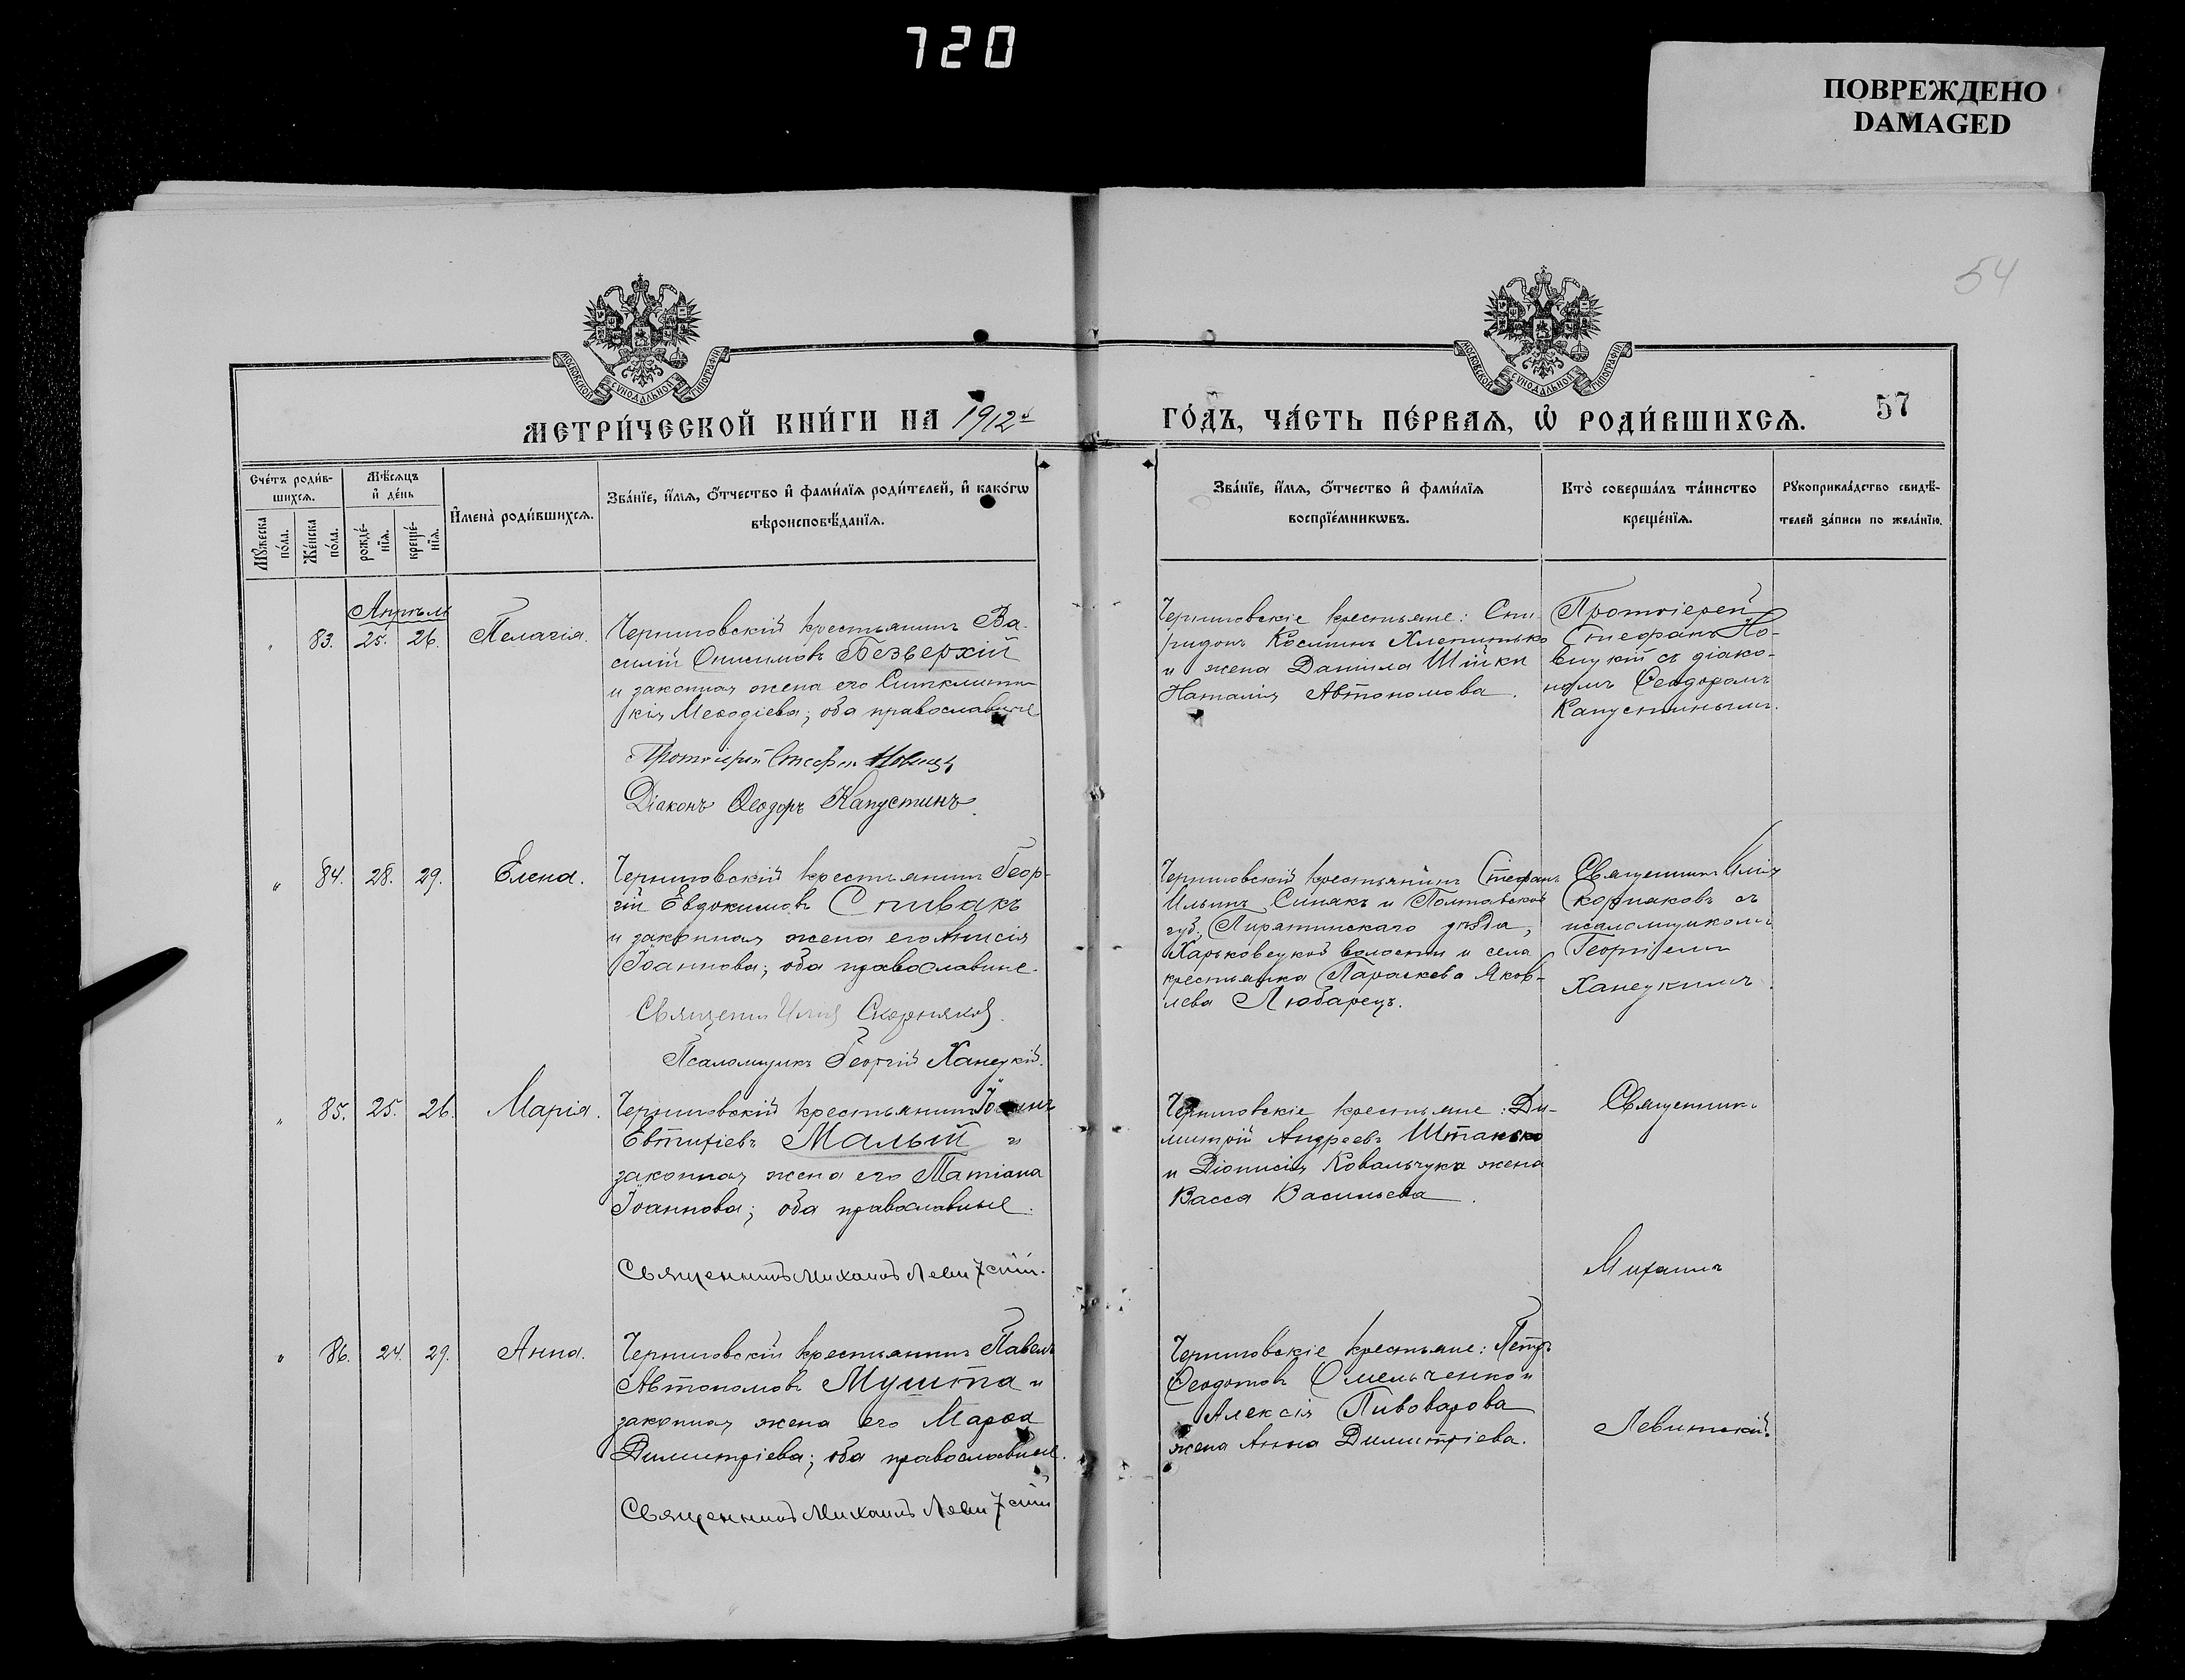 720
ПОВРЕЖДЕНО
DAMAGED
54
МОСКОВСКОЙ СѴНОДАЛЬНОЙ ТИПОГРАФІИ
МОСКОВСКОЙ СѴНОДАЛЬНОЙ ТИПОГРАФІИ
МЕТРИ́ЧЕСКОЙ КНИ́ГИ НА 1912
ГО́ДЪ, ЧА́СТЬ ПЕ́РВАЯ, Ѡ РОДИ́ВШИХСЯ.
57
Сче́тъ роди́в-
шихся.
Мѣ́сяцъ
и де́нь
Му́жеска
по́ла.
Же́нска
по́ла.
рожде́-
нія.
креще́-
нія.
Имена̀ роди́вшихся.
Зва́ніе, и́мя, о́тчество и фами́лія роди́телей, и како́гѡ
вѣроисповѣ́данія.
Зва́ніе, и́мя, о́тчество и фами́лія
воспріе́мникѡвъ.
Кто̀ соверша́лъ та́инство
креще́нія.
Рукоприкла́дство свидѣ́-
телей за́писи по жела́нію.
Апрѣль
" 83. 25. 26. Пелагія.
Черниговскій крестьянинъ Ва-
силій Онисимовъ Безверхій
и законная жена его Синклити-
кія Меѳодіева; оба православные
Протоіерей Стефанъ Новицкій
Діаконъ Ѳеодоръ Капустинъ.
Черниговскіе крестьяне: Спи-
ридонъ Косминъ Хлепитько
и жена Даніила Шійки
Наталія Автономова.
Протоіерей
Стефанъ Но-
вицкій съ діако-
номъ Ѳеодоромъ
Капустинымъ.
" 84. 28. 29. Елена.
Черниговскій крестьянинъ Геор-
гій Евдокимовъ Спивакъ
и законная жена его Анисія
Іоаннова; оба православные.
Священникъ Илія Скорняковъ.
Псаломщикъ Георгій Ханецкій.
Черниговскій крестьянинъ Стефанъ
Ильинъ Синякъ и Полтавской
губ., Пирятинскаго уѣзда,
Харьковецкой волости и села
крестьянка Параскева Яков-
лева Любарецъ.
Священникъ Илія
Скорняковъ съ
псаломщикомъ
Георгіемъ
Ханецкимъ.
" 85. 25. 26. Марія.
Черниговскій крестьянинъ Іоаннъ
Евтихіевъ Малый и
законная жена его Татіана
Іоаннова; оба православные.
Священникъ Михаилъ Левитскій.
Черниговскіе крестьяне: Ди-
митрій Андреевъ Штанько
и Діонисія Ковальчука жена
Васса Васильева.
Священникъ
Михаилъ
" 86. 24. 29. Анна.
Черниговскій крестьянинъ Павелъ
Автономовъ Мушта и
законная жена его Марѳа
Димитріева; оба православные.
Священникъ Михаилъ Левитскій
Черниговскіе крестьяне: Петръ
Ѳеодотовъ Омельченко и
Алексія Пивоварова
жена Анна Димитріева.
Левитскій.